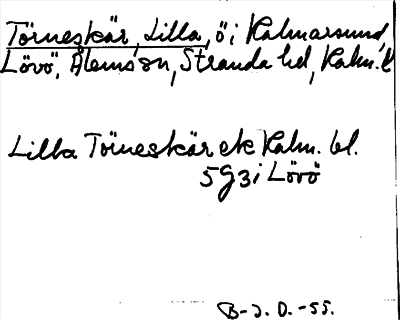 Törneskär, Lilla, ö i Kalmarsund,
Lövö, Ålems sn, Stranda hd, Kalm. l
Lilla Törneskär ek Kalm. bl.
5G3i Lövö
B-J. O. -55.